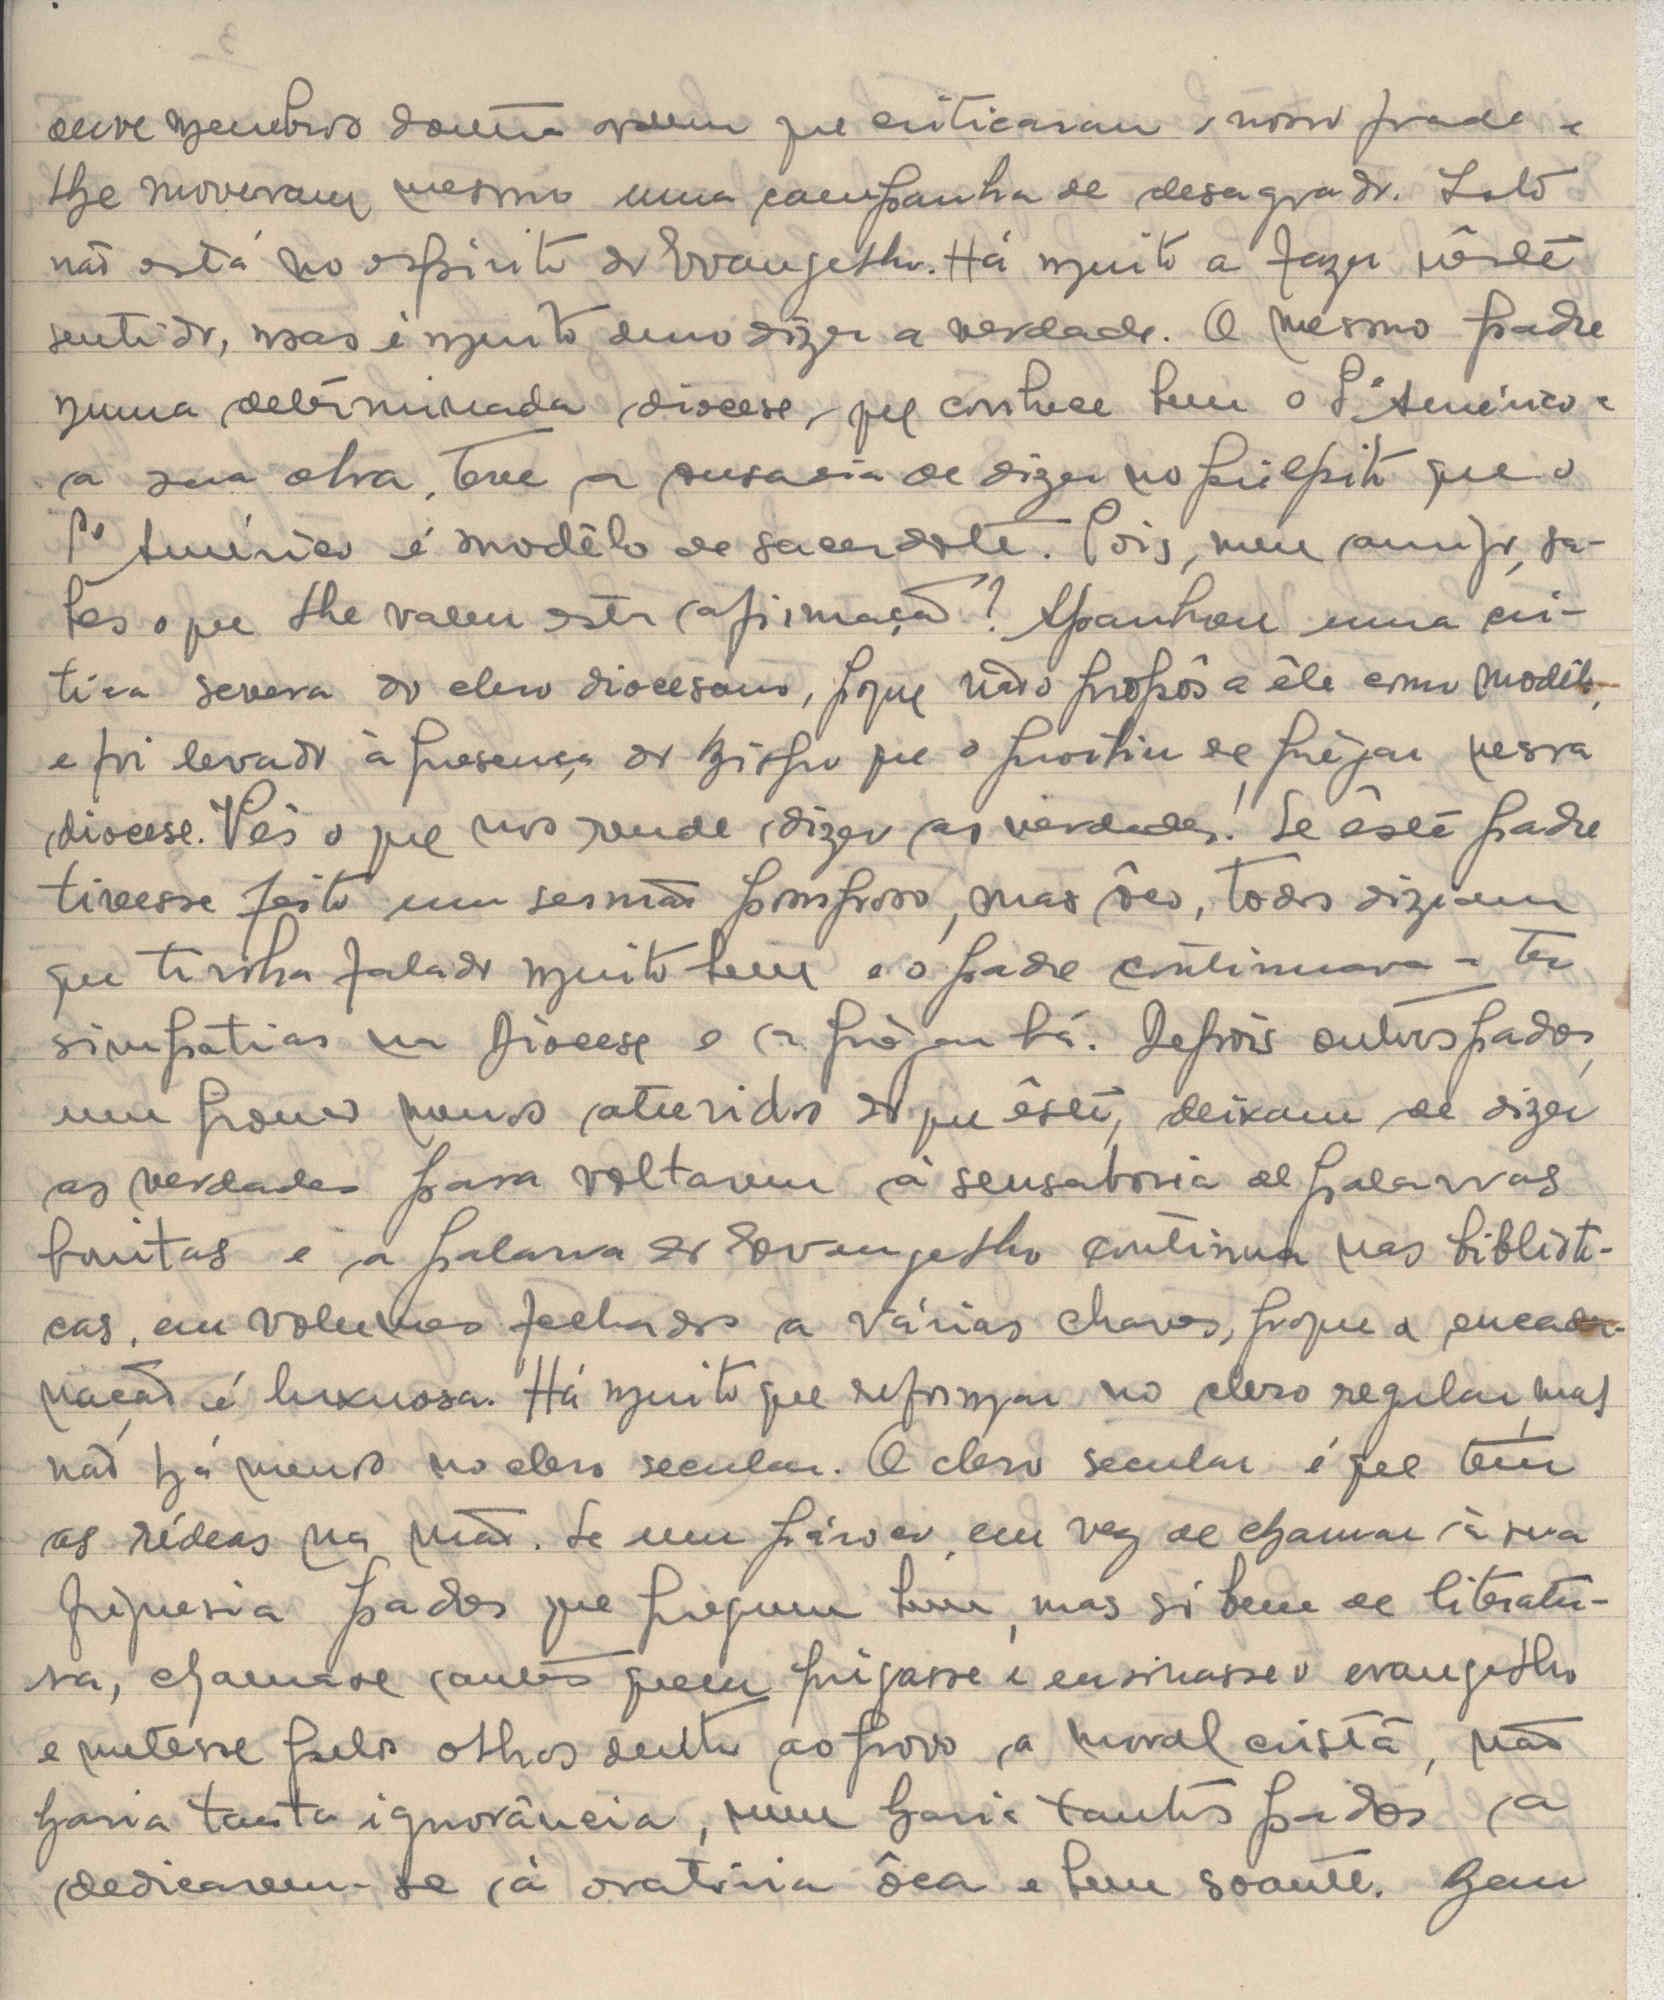 ouve membros doutra ordem que criticaram o nosso frade e
lhe moveram mesmo uma campanha de desagrado. Isto
não está no espírito do Evangelho. Há muito a fazer nêste
sentido, mas é muito duro dizer a verdade. O mesmo padre
numa determinada diocese, que conhece bem o Pe Américo e
a sua obra, teve a ousadia de dizer no púlpito que o
Pe Américo é modêlo de sacerdote. Pois, meu amigo, sa-
bes o que lhe valeu esta afirmação? Apanhou uma crí-
tica severa do clero diocesano, porque não o propôs a êle como modêlo,
e foi levado à presença do Bispo que o proibiu de prègar nessa
diocese. Vês o que nos rende dizer as verdades! Se êste padre
tivesse feito um sermão pomposo, mas ôco, todos diziam
que tinha falado muito bem e o padre continuava a ter
simpatias na Diocese e a prègar lá. Depois outros padres,
um pouco menos aturidos do que êste, deixam de dizer
as verdades para voltarem à sensaboria de palavras
bonitas e a palavra do Evangelho continua nas bibliote-
cas, em volumes fechados a várias chaves, porque a encader-
nação é luxuosa. Há muito que reformar no clero regular, mas
não há menos no clero secular. O clero secular é que tem
as rédeas na mão. Se um pároco, em vez de chamar à sua
freguesia padres que préguem bem, mas só bem de literatu-
ra, chamasse antes quem prègasse e ensinasse o evangelho
e metesse pelos olhos dentro ao povo a moral cristã, não
haria tanta ignorância, nem haria tantos padres a
dedicarem-se à oratória ôca e bem soante. Hem